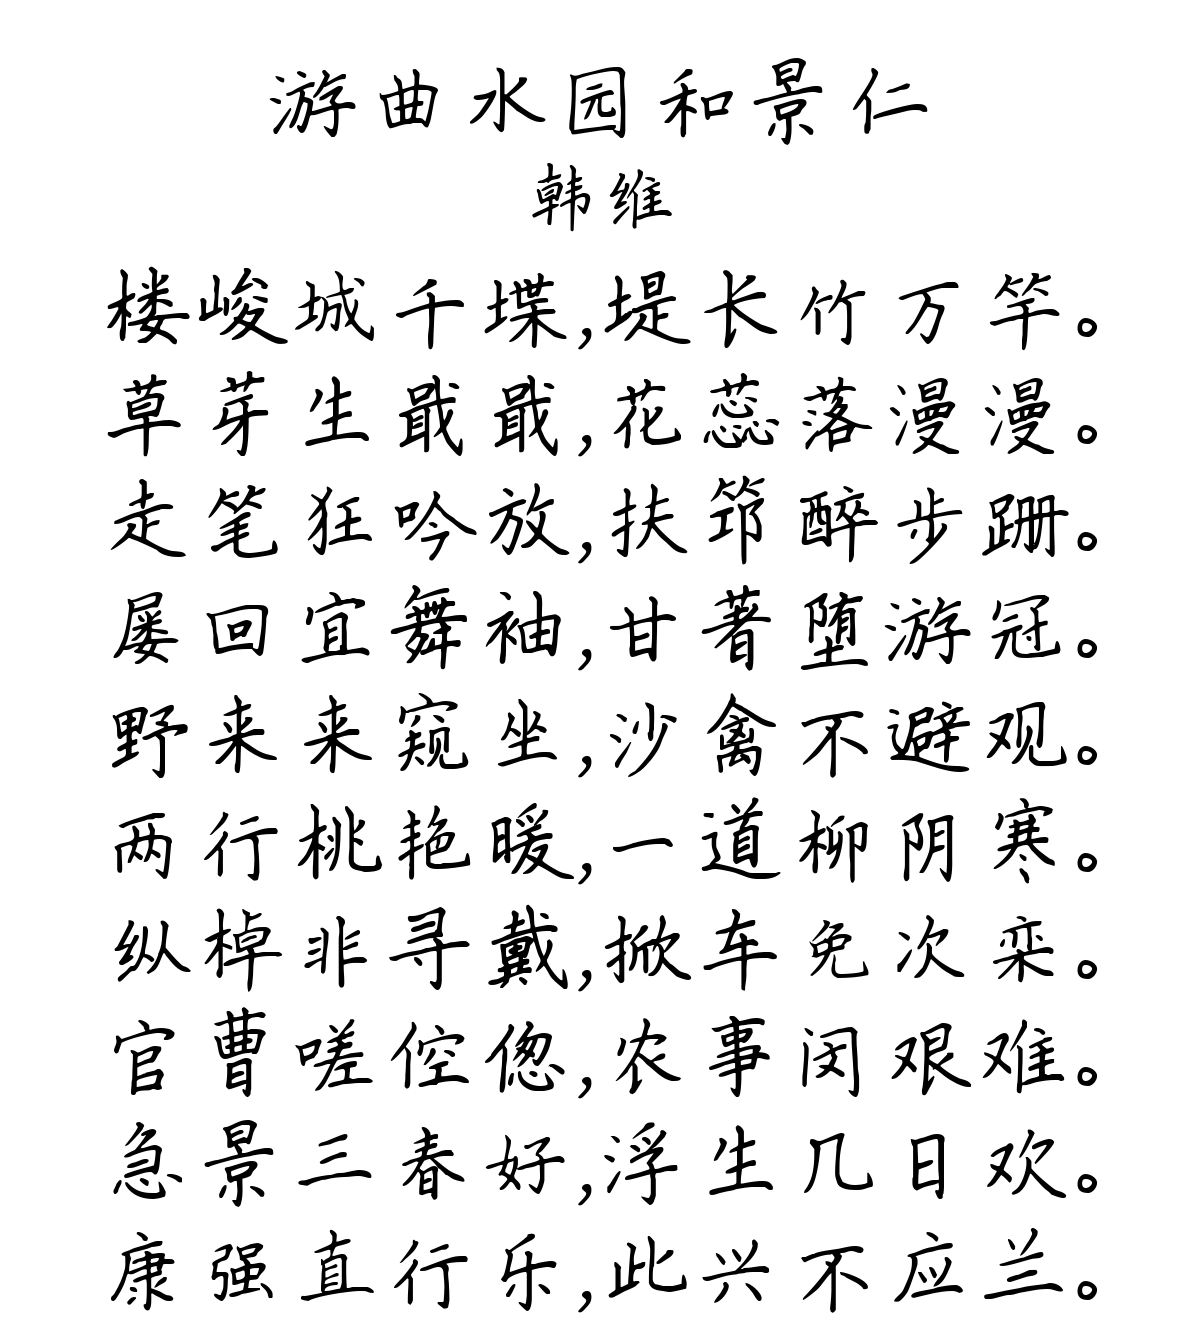 游曲水园和景仁
韩维
楼峻城千堞,堤长竹万竿。
草芽生戢戢,花蕊落漫漫。
走笔狂吟放,扶筇醉步跚。
屡回宜舞袖,甘著堕游冠。
野来来窥坐,沙禽不避观。
两行桃艳暖,一道柳阴寒。
纵棹非寻戴,掀车免次栾。
官曹嗟倥偬,农事闵艰难。
急景三春好,浮生几日欢。
康强直行乐,此兴不应兰。